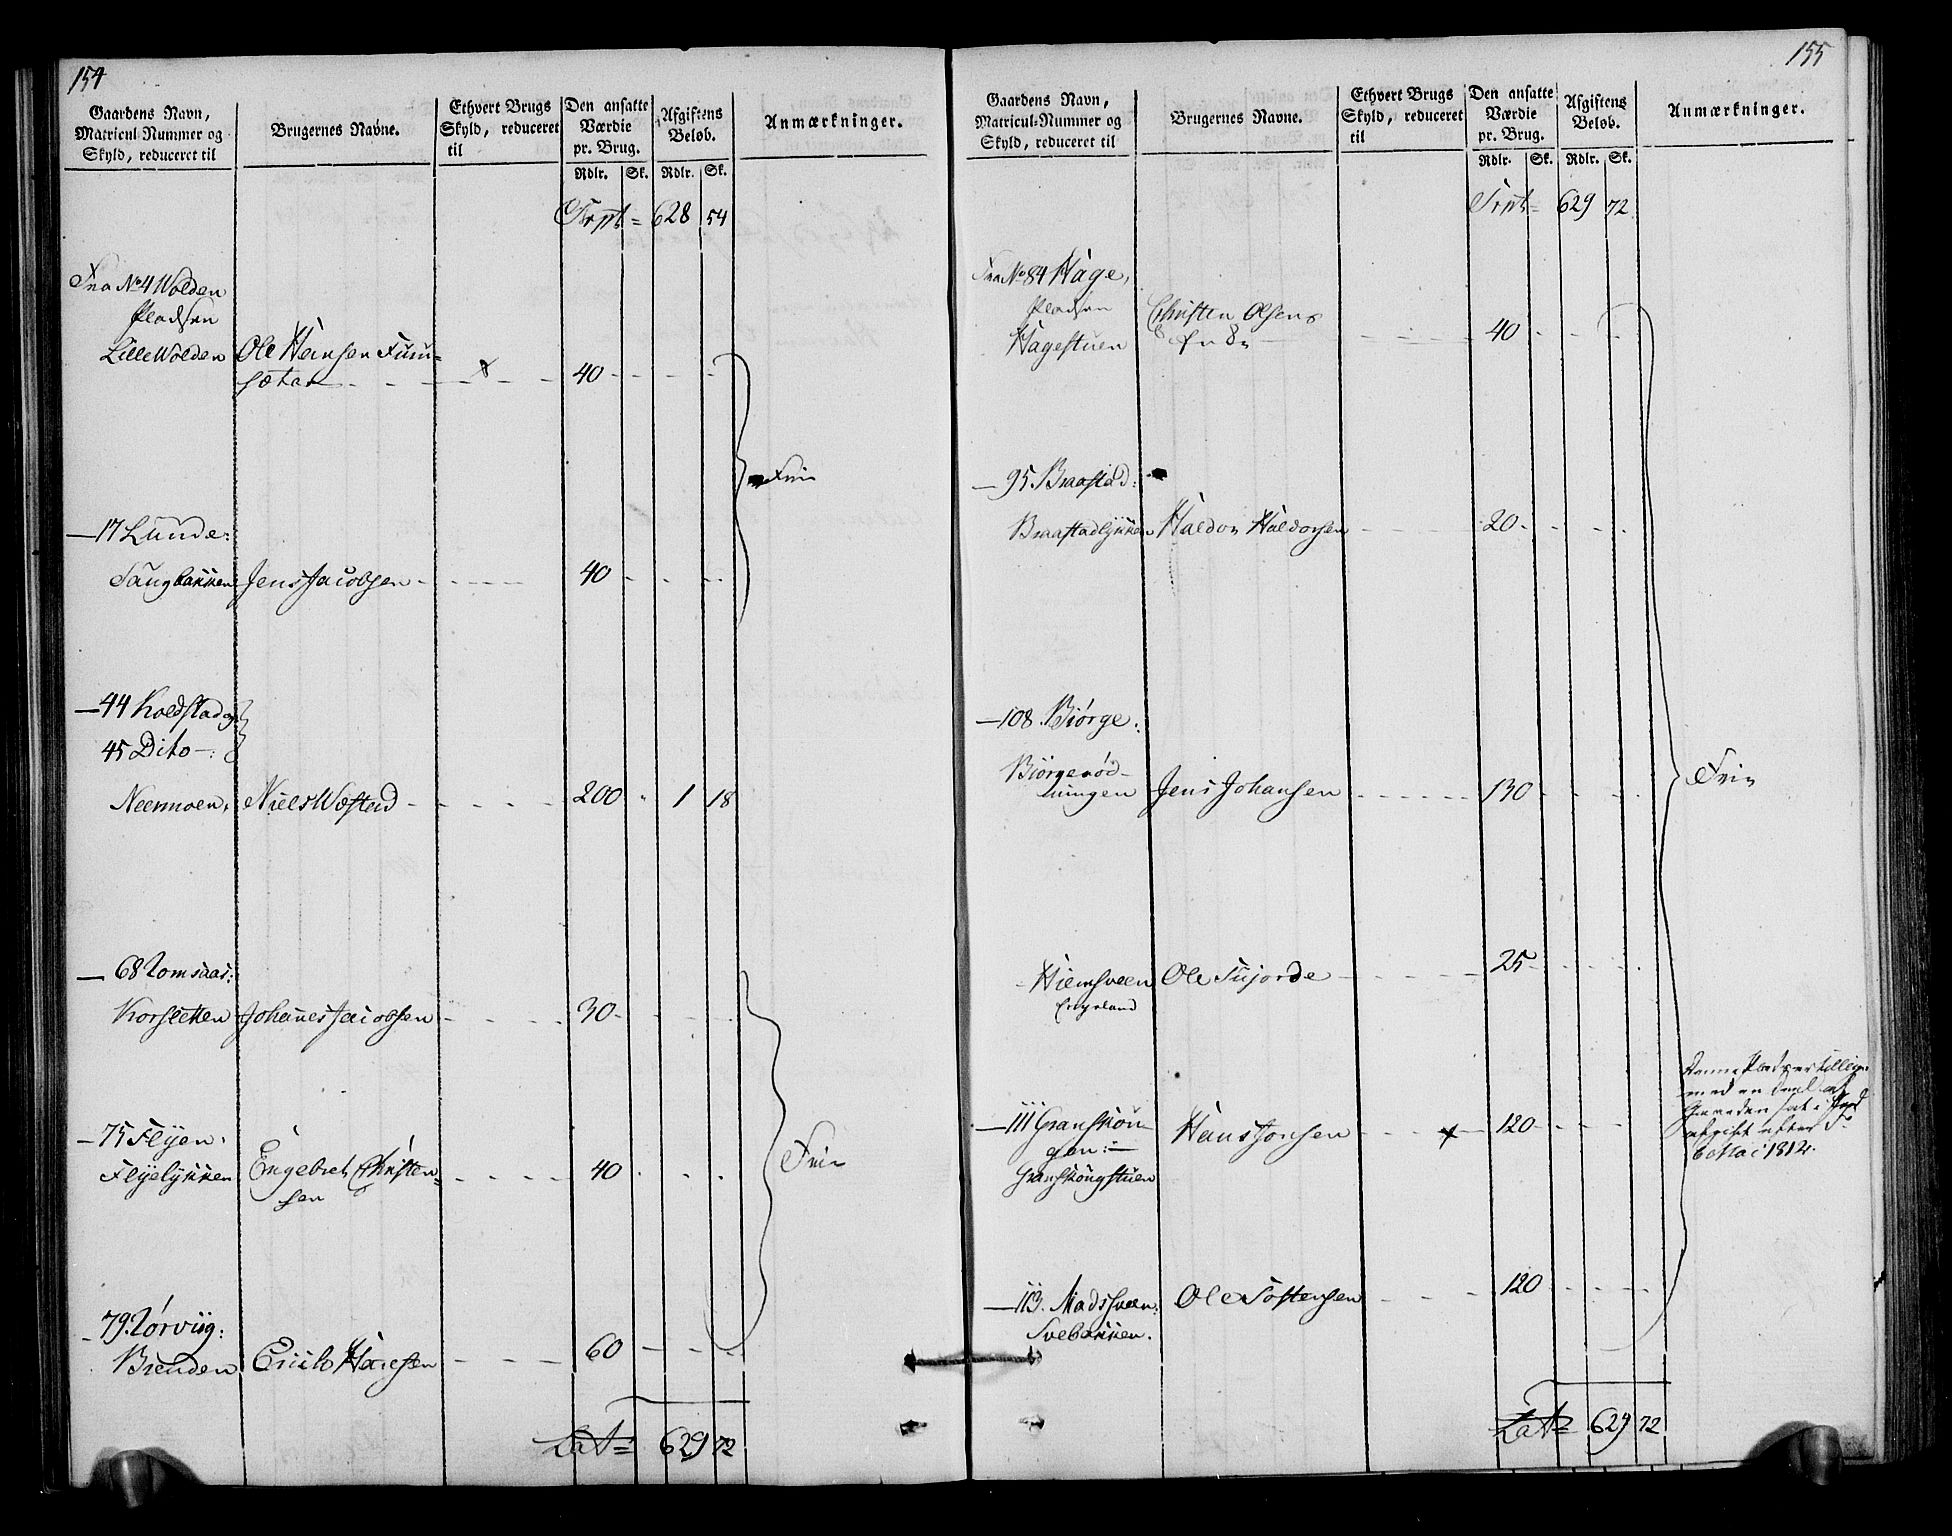 154
Gaardens Navn,
Matricul-Nummer og
Skyld, reduceret til
Brugernes Navne.
Ethvert Brugs
Skyld, reduceret
til
Den ansatte
Værdie
pr. Brug.
Afgiftens
Beløb.
Anmærkninger.
Rdlr. Sk. Rdlr. Sk.
Trpt = 628 54
Fra No 4 Wolden
Pladsen
Lille Wolden Ole Hansen Furu-
sæter 40
Frie
17 Lunde:
Saugbakken Jens Jacobsen 40
44 Koldstad og
45 Dito
Neermoen Niels Wæstad 200 1 18
68 Romsaas:
Korsletten Johannes Jacobsen 30
75 Flyen:
Flyelykken Engebret Christen-
sen 40
Frie
79 Rørviig:
Brenden Erich Hansen 60
Lat = 629 72
155
Gaardens Navn,
Matricul-Nummer og
Skyld, reduceret til
Brugernes Navne.
Ethvert Brugs
Skyld, reduceret
til
Den ansatte
Værdie
pr. Brug.
Afgiftens
Beløb.
Anmærkninger.
Rdlr. Sk. Rdlr. Sk.
Trpt = 629 72
Fra No 84 Hage,
Pladsen
Hagestuen Christen Olsens
40
95 Braastad:
Braastadlykken Haldor Haldorsen 20
108. Biørge:
Biørgerød-
ningen Jens Johansen 130
Frie
Hiemsveen Ole 25
111 Granskoun
gen:
Granskougstuen Hans Jonsen 120
Denne Plads er tillige
med en Deel af
Gaarden sat i
afgift efter
6 Mai 1812.
113. Madssveen:
Svebakken. Ole Tostensen 120
Lat = 629 72